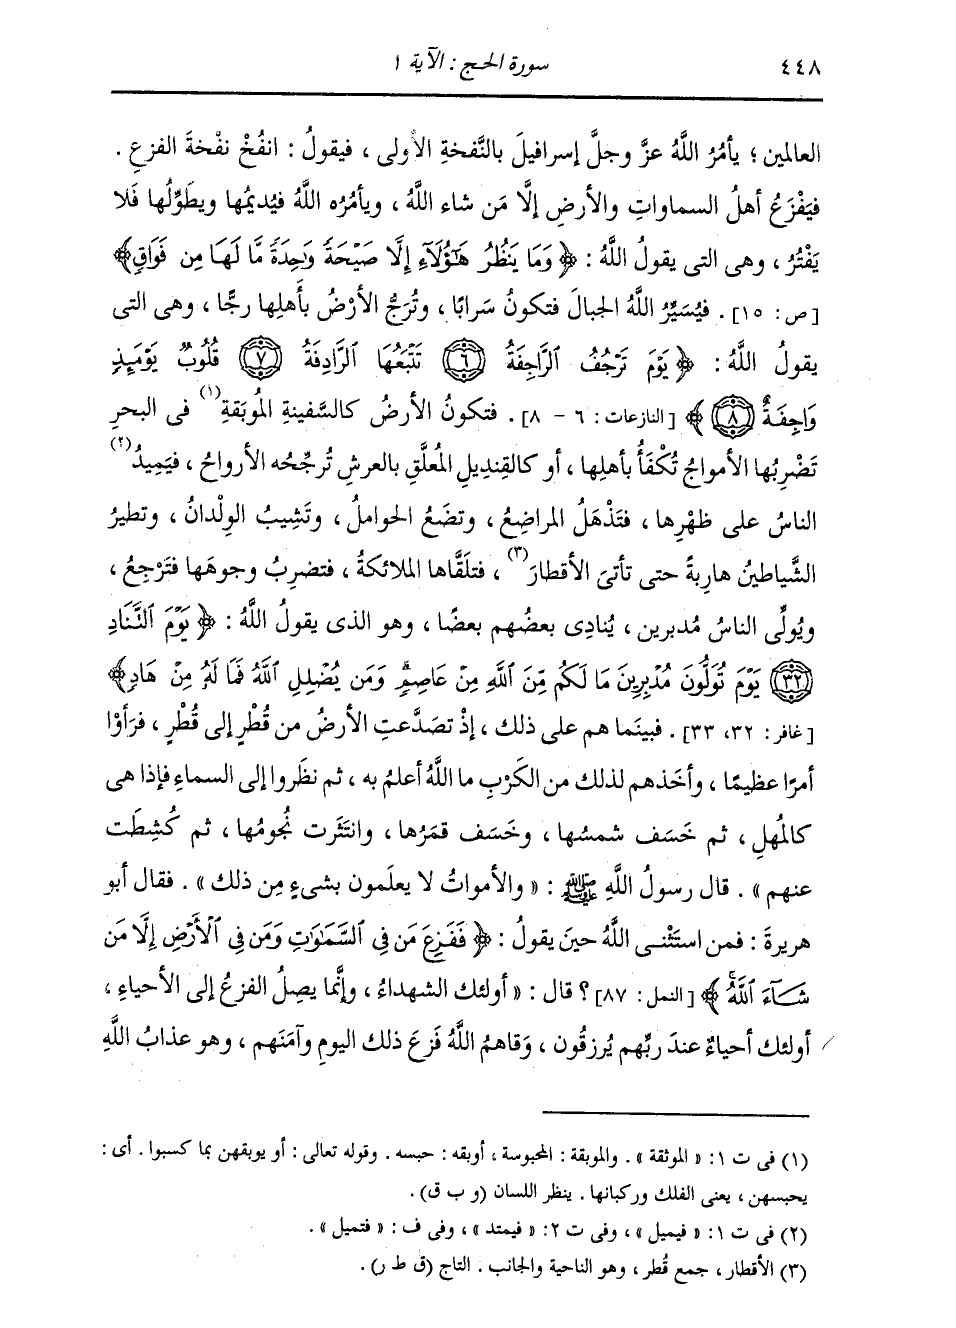 ٤٤٨
سورة الحج : الآية ١
العالمين ؛ يأمُرُ اللَّهُ عزَّ وجلَّ إسرافيلَ بالنَّفخةِ الأولى ، فيقولُ : انفُخْ نفْخةَ الفزعِ .
فيَفْزَعُ أهلُ السماواتِ والأرضِ إلَّا مَن شاء اللَّهُ ، ويأمُرُه اللَّهُ فيُديمُها ويطَوِّلُها فَلا
يَفْتُرُ ، وهى التى يقولُ اللَّهُ : ﴿ وَمَا يَنظُرُ هَٰٓؤُلَآءِ إِلَّا صَيْحَةً وَٰحِدَةً مَّا لَهَا مِن فَوَاقٍ ﴾
[ ص : ١٥] . فيُسَيِّرُ اللَّهُ الجبالَ فتكونُ سَرابًا ، وتُرَجُّ الأرْضُ بأَهلِها رجًّا ، وهى التى
يقولُ اللَّهُ : ﴿ يَوْمَ تَرْجُفُ ٱلرَّاجِفَةُ ﴿٦﴾ تَتْبَعُهَا ٱلرَّادِفَةُ ﴿٧﴾ قُلُوبٌ يَوْمَئِذٍ
وَاجِفَةٌ ﴿٨﴾ ﴾ [ النازعات : ٦ - ٨] . فتكونُ الأرضُ كالسَّفينةِ المُوبَقةِ(١) فى البحرِ
تَضْرِبُها الأمواجُ تُكْفَأُ بأهلِها ، أو كالقِنديلِ المُعلَّقِ بالعرشِ تُرجِّحُه الأرواحُ ، فيَمِيدُ(٢)
الناسُ على ظهْرِها ، فتَذْهَلُ المراضِعُ ، وتضَعُ الحواملُ ، وتَشِيبُ الوِلْدانُ ، وتطيرُ
الشَّياطينُ هارِبةً حتى تأتىَ الأقطارَ(٣) ، فتلَقَّاها الملائكةُ ، فتضرِبُ وجوهَها فتَرْجِعُ ،
ويُولِّى الناسُ مُدبرين ، يُنادِى بعضُهم بعضًا ، وهو الذى يقولُ اللَّهُ : ﴿ يَوْمَ ٱلتَّنَادِ
﴿٣٢﴾ يَوْمَ تُوَلُّونَ مُدْبِرِينَ مَا لَكُم مِّنَ ٱللَّهِ مِنْ عَاصِمٍ وَمَن يُضْلِلِ ٱللَّهُ فَمَا لَهُ مِنْ هَادٍ ﴾
[ غافر : ٣٢، ٣٣] . فبينَما هم على ذلك ، إذْ تصَدَّعتِ الأرضُ من قُطْرٍ إلى قُطْرٍ ، فرَأوْا
أمرًا عظيمًا ، وأخَذهم لذلك من الكَرْبِ ما اللَّهُ أعلمُ به ، ثم نظَروا إلى السماءِ فإذا هى
كالمُهلِ ، ثم خَسَف شمسُها ، وخَسَف قمَرُها ، وانتَثَرت نُجومُها ، ثم كُشِطَت
عنهم » . قال رسولُ اللَّهِ ﷺ : « والأمواتُ لا يعلَمون بشىءٍ مِن ذلك » . فقال أبو
هريرةَ : فمن استَثْنى اللَّهُ حينَ يقولُ : ﴿ فَفَزِعَ مَن فِي ٱلسَّمَٰوَٰتِ وَمَن فِي ٱلْأَرْضِ إِلَّا مَن
شَآءَ ٱللَّهُ ﴾ [ النمل : ٨٧] ؟ قال : « أولئك الشهداءُ ، وإنَّما يصِلُ الفزعُ إلى الأحياءِ ،
أولئك أحياءٌ عندَ ربِّهم يُرزقُون ، وَقاهمُ اللَّهُ فَزعَ ذلك اليومِ وآمَنَهم ، وهو عذابُ اللَّهِ
(١) فى ت ١: « الموثقة » . والموبقة : المحبوسة ، أوبقه : حبسه . وقوله تعالى : أو يوبقهن بما كسبوا . أى :
يحبسهن ، يعنى الفلك وركبانها . ينظر اللسان (و ب ق) .
(٢) فى ت ١: « فيميل » ، وفى ت ٢: « فيمتد » ، وفى ف : « فتميل » .
(٣) الأقطار ، جمع قُطر ، وهو الناحية والجانب . التاج (ق ط ر) .